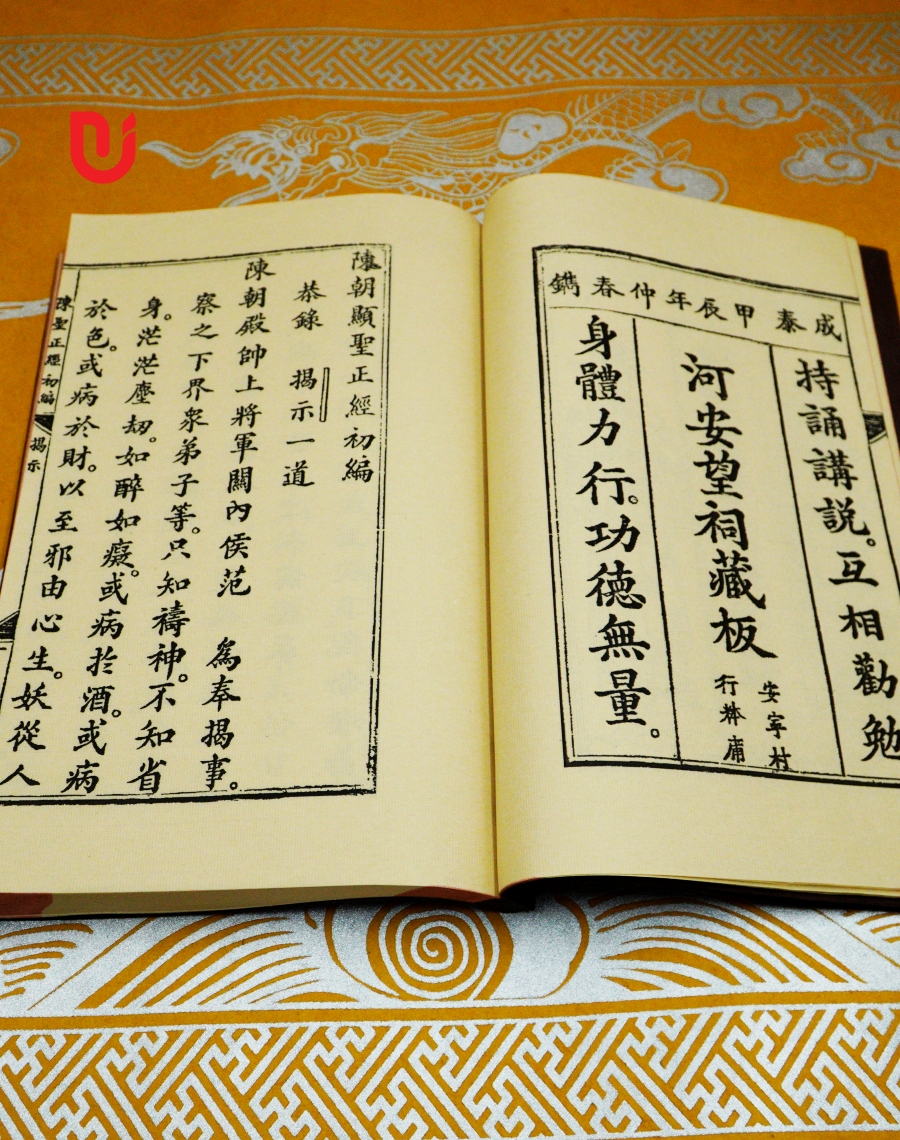 Ui
成泰甲辰年仲春鐫
持誦講説。互相勸勉
河安望祠藏板
安寧村
行
身體力行。功德無量。
陳朝顯聖正經初編
恭錄 揭示一道
陳朝殿帥上將軍關內侯范 為奉揭事。
察之下界衆弟子等。只知禱神。不知省
身。茫茫塵劫。如醉如癡。或病於酒。或病
於色。或病於財。以至邪由心生。妖從人
陳聖正經初編 揭示